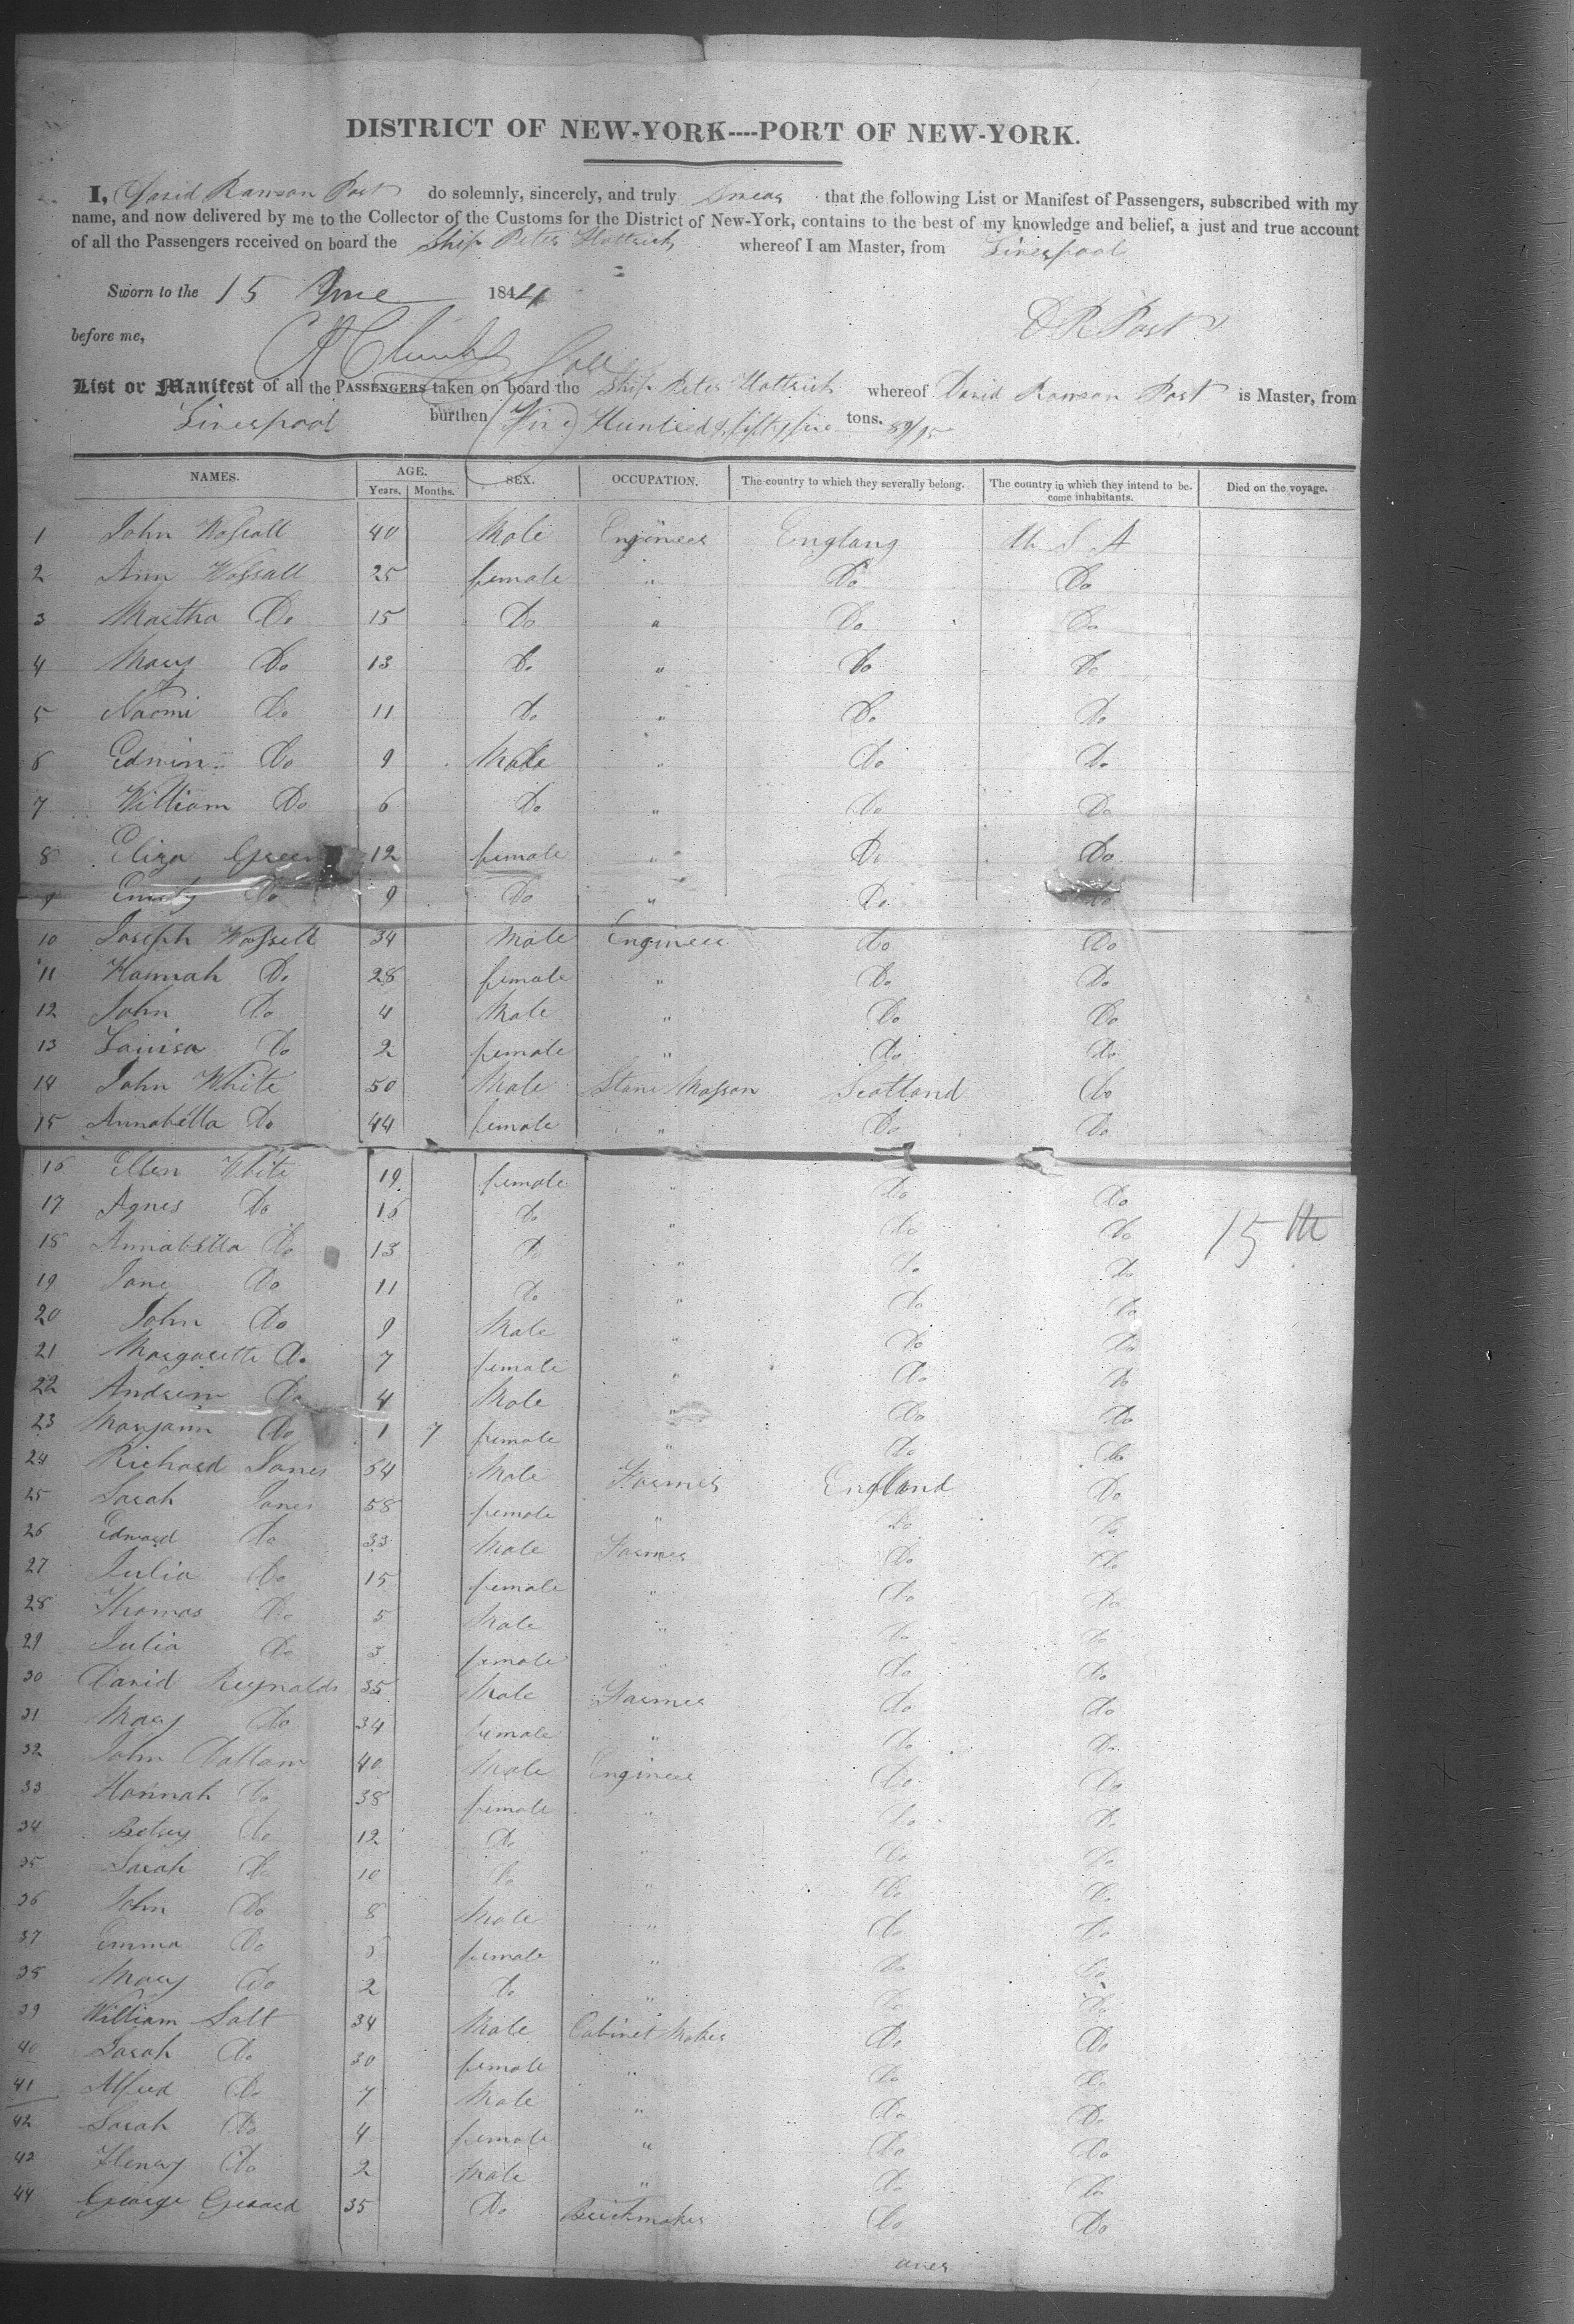 DISTRICT OF NEW-YORK----PORT OF NEW-YORK.
I, David Rawson Post do solemnly, sincerely, and truly Swear that the following List or Manifest of Passengers, subscribed with my
name, and now delivered by me to the Collector of the Customs for the District of New-York, contains to the best of my knowledge and belief, a just and true account
of all the Passengers received on board the Ship Peter Hattrick whereof I am Master, from Liverpool
Sworn to the 15 June 1844
before me, D R Post
List or Manifest of all the PASSENGERS taken on board the Ship Peter Hattrick whereof David Rawson Post is Master, from
Liverpool burthen Five Hundred & fifty five tons. 89/95
NAMES. AGE. SEX. OCCUPATION. The country to which they severally belong. The country in which they intend to be- Died on the voyage.
Years. Months. come inhabitants.
1 John Wossall 40 Male Engineer England U S A
2 Ann Wossall 25 female " Do Do
3 Martha Do 15 Do " Do Do
4 Mary Do 13 Do " Do Do
5 Naomi Do 11 Do " Do Do
6 Edwin Do 9 Male " Do Do
7 William Do 6 Do " Do Do
8 Eliza Green 12 female " Do Do
9 Emily Do 9 Do " Do Do
10 Joseph Wossell 34 Male Engineer Do Do
11 Hannah Do 28 female " Do Do
12 John Do 4 Male " Do Do
13 Louisa Do 2 female " Do Do
14 John White 50 Male Stone Masson Scotland Do
15 Annabella Do 44 female " Do Do
16 Ellen White 19 female " Do Do
17 Agnes Do 15 Do " Do Do 15th
18 Annabella Do 13 Do " Do Do
19 Jane Do 11 Do " Do Do
20 John Do 9 Male " Do Do
21 Margarette Do 7 female " Do Do
22 Andrew Do 4 Male " Do Do
23 Maryann Do 1 7 female " Do Do
24 Richard Jones 54 Male Farmer England Do
25 Sarah Jones 58 female " Do Do
26 Edward Do 33 Male Farmer Do Do
27 Julia Do 15 female " Do Do
28 Thomas Do 5 Male " Do Do
29 Julia Do 3 female " Do Do
30 David Reynolds 35 Male Farmer Do Do
31 Mary Do 34 female " Do Do
32 John Dallam 40 Male Engineer Do Do
33 Hannah Do 38 female " Do Do
34 Betsey Do 12 Do " Do Do
35 Sarah Do 10 Do " Do Do
36 John Do 8 Male " Do Do
37 Emma Do 5 female " Do Do
38 Mary Do 2 Do " Do Do
39 William Salt 34 Male Cabinet Maker Do Do
40 Sarah Do 30 female " Do Do
41 Alfred Do 7 Male " Do Do
42 Sarah Do 4 female " Do Do
43 Henry Do 2 Male " Do Do
44 George Gerard 35 Do Brickmaker Do Do
over